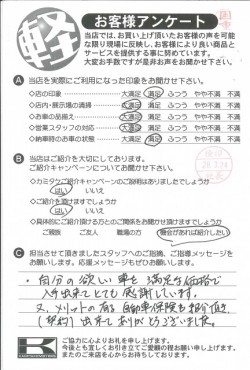 軽
お客様アンケート
当店では、お買い上げ頂いたお客様の声を可能
な限り現場に反映し、お客様により良い商品と
サービスを提供する事に努めています。
大変お手数ですが是非お声をお聞かせ下さい。
A 当店を実際にご利用になった印象をお聞かせ下さい。
◇店の印象 大満足 満足 ふつう やや不満 不満
◇店内・展示場の清掃 大満足 満足 ふつう やや不満 不満
◇お車の品揃え 大満足 満足 ふつう やや不満 不満
◇営業スタッフの対応 大満足 満足 ふつう やや不満 不満
◇納車時のお車の状態 大満足 満足 ふつう やや不満 不満
B 当店はご紹介を大切にしております。
ご紹介キャンペーンについてお聞かせ下さい。
◇カミタケご紹介キャンペーンのご説明はありましたでしょうか
はい いいえ
◇ご紹介を頂けますでしょうか
はい いいえ
◇具体的にご紹介頂ける方とのご関係をお聞かせ頂けますでしょうか
ご親族 ご友人 職場の方 機会があれば紹介したい
C 担当させて頂きましたスタッフへのご指摘、ご指導メッセージを
お願いします。応援メッセージもぜひお願いします。
・自分の欲しい車を満足な価格で
入手出来てとても感謝しています。
又、メリットの有る自動車保険も紹介頂き、
(契約)出来てありがとうございました。
K
ご協力に心よりお礼を申し上げます。
今後とも宜しくお引き立てご愛顧の程お願い申し上げます。
またのご来店を心からお待ちしております。